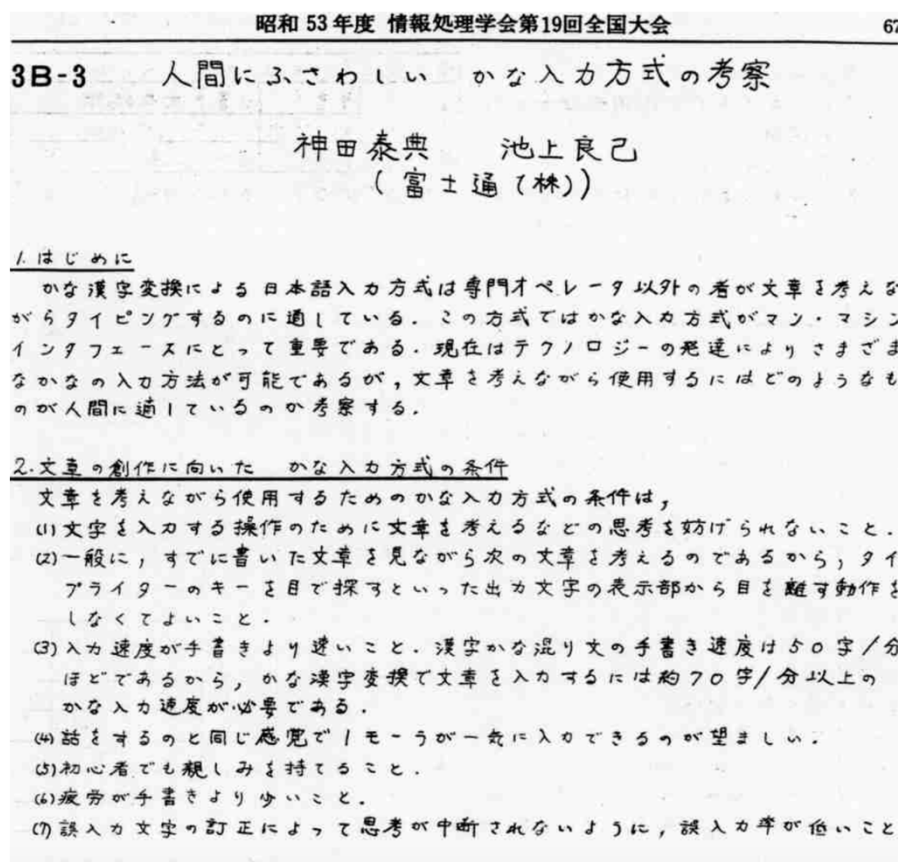 昭和 53 年度 情報処理学会第19回全国大会 67
3B-3 人間にふさわしい かな入力方式の考察
神田泰典 池上良己
(富士通(株))
1. はじめに
かな漢字変換による日本語入力方式は専門オペレータ以外の者が文章を考えな
がらタイピングするのに適している．この方式ではかな入力方式がマン・マシン
インタフェースにとって重要である．現在はテクノロジーの発達によりさまざま
なかなの入力方法が可能であるが，文章を考えながら使用するにはどのようなも
のが人間に適しているのか考察する．
2.文章の創作に向いた かな入力方式の条件
文章を考えながら使用するためのかな入力方式の条件は，
(1)文字を入力する操作のために文章を考えるなどの思考を妨げられないこと．
(2)一般に，すでに書いた文章を見ながら次の文章を考えるのであるから，タイ
プライターのキーを目で探すといった出力文字の表示部から目を離す動作を
しなくてよいこと．
(3)入力速度が手書きより速いこと．漢字かな混り文の手書き速度は50字/分
ほどであるから，かな漢字変換で文章を入力するには約70字/分以上の
かな入力速度が必要である．
(4)話をするのと同じ感覚で1モーラが一気に入力できるのが望ましい．
(5)初心者でも親しみを持てること．
(6)疲労が手書きより少いこと．
(7)誤入力文字の訂正によって思考が中断されないように，誤入力率が低いこと